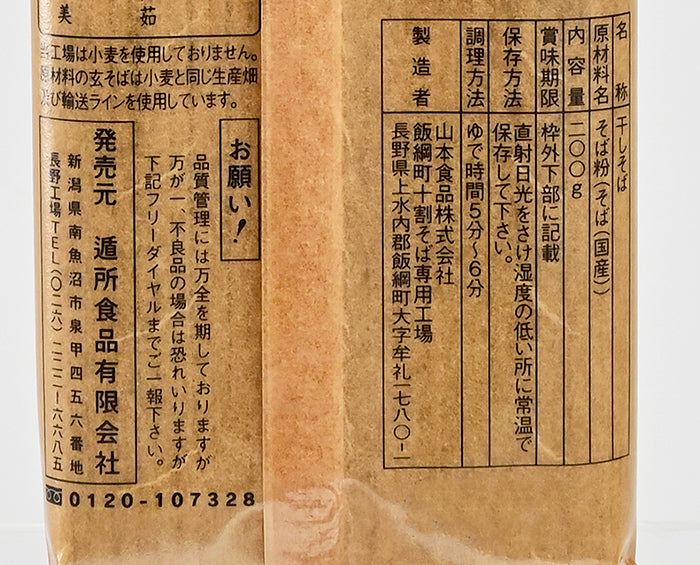 名称 干しそば
原材料名 そば粉(そば(国産))
内容量 二〇〇g
賞味期限 枠外下部に記載
保存方法 直射日光をさけ湿度の低い所に常温で
保存して下さい。
調理方法 ゆで時間5分〜6分
製造者 山本食品株式会社
飯綱町十割そば専用工場
長野県上水内郡飯綱町大字牟礼一七八〇-一
美 茹
当工場は小麦を使用しておりません。
原材料の玄そばは小麦と同じ生産畑
及び輸送ラインを使用しています。
お願い!
品質管理には万全を期しておりますが
万が一、不良品の場合は恐れいりますが
下記フリーダイヤルまでご一報下さい。
発売元 遁所食品有限会社
新潟県南魚沼市泉甲四五六番地
長野工場TEL(〇二六)二二二-六六八五
0120-107328